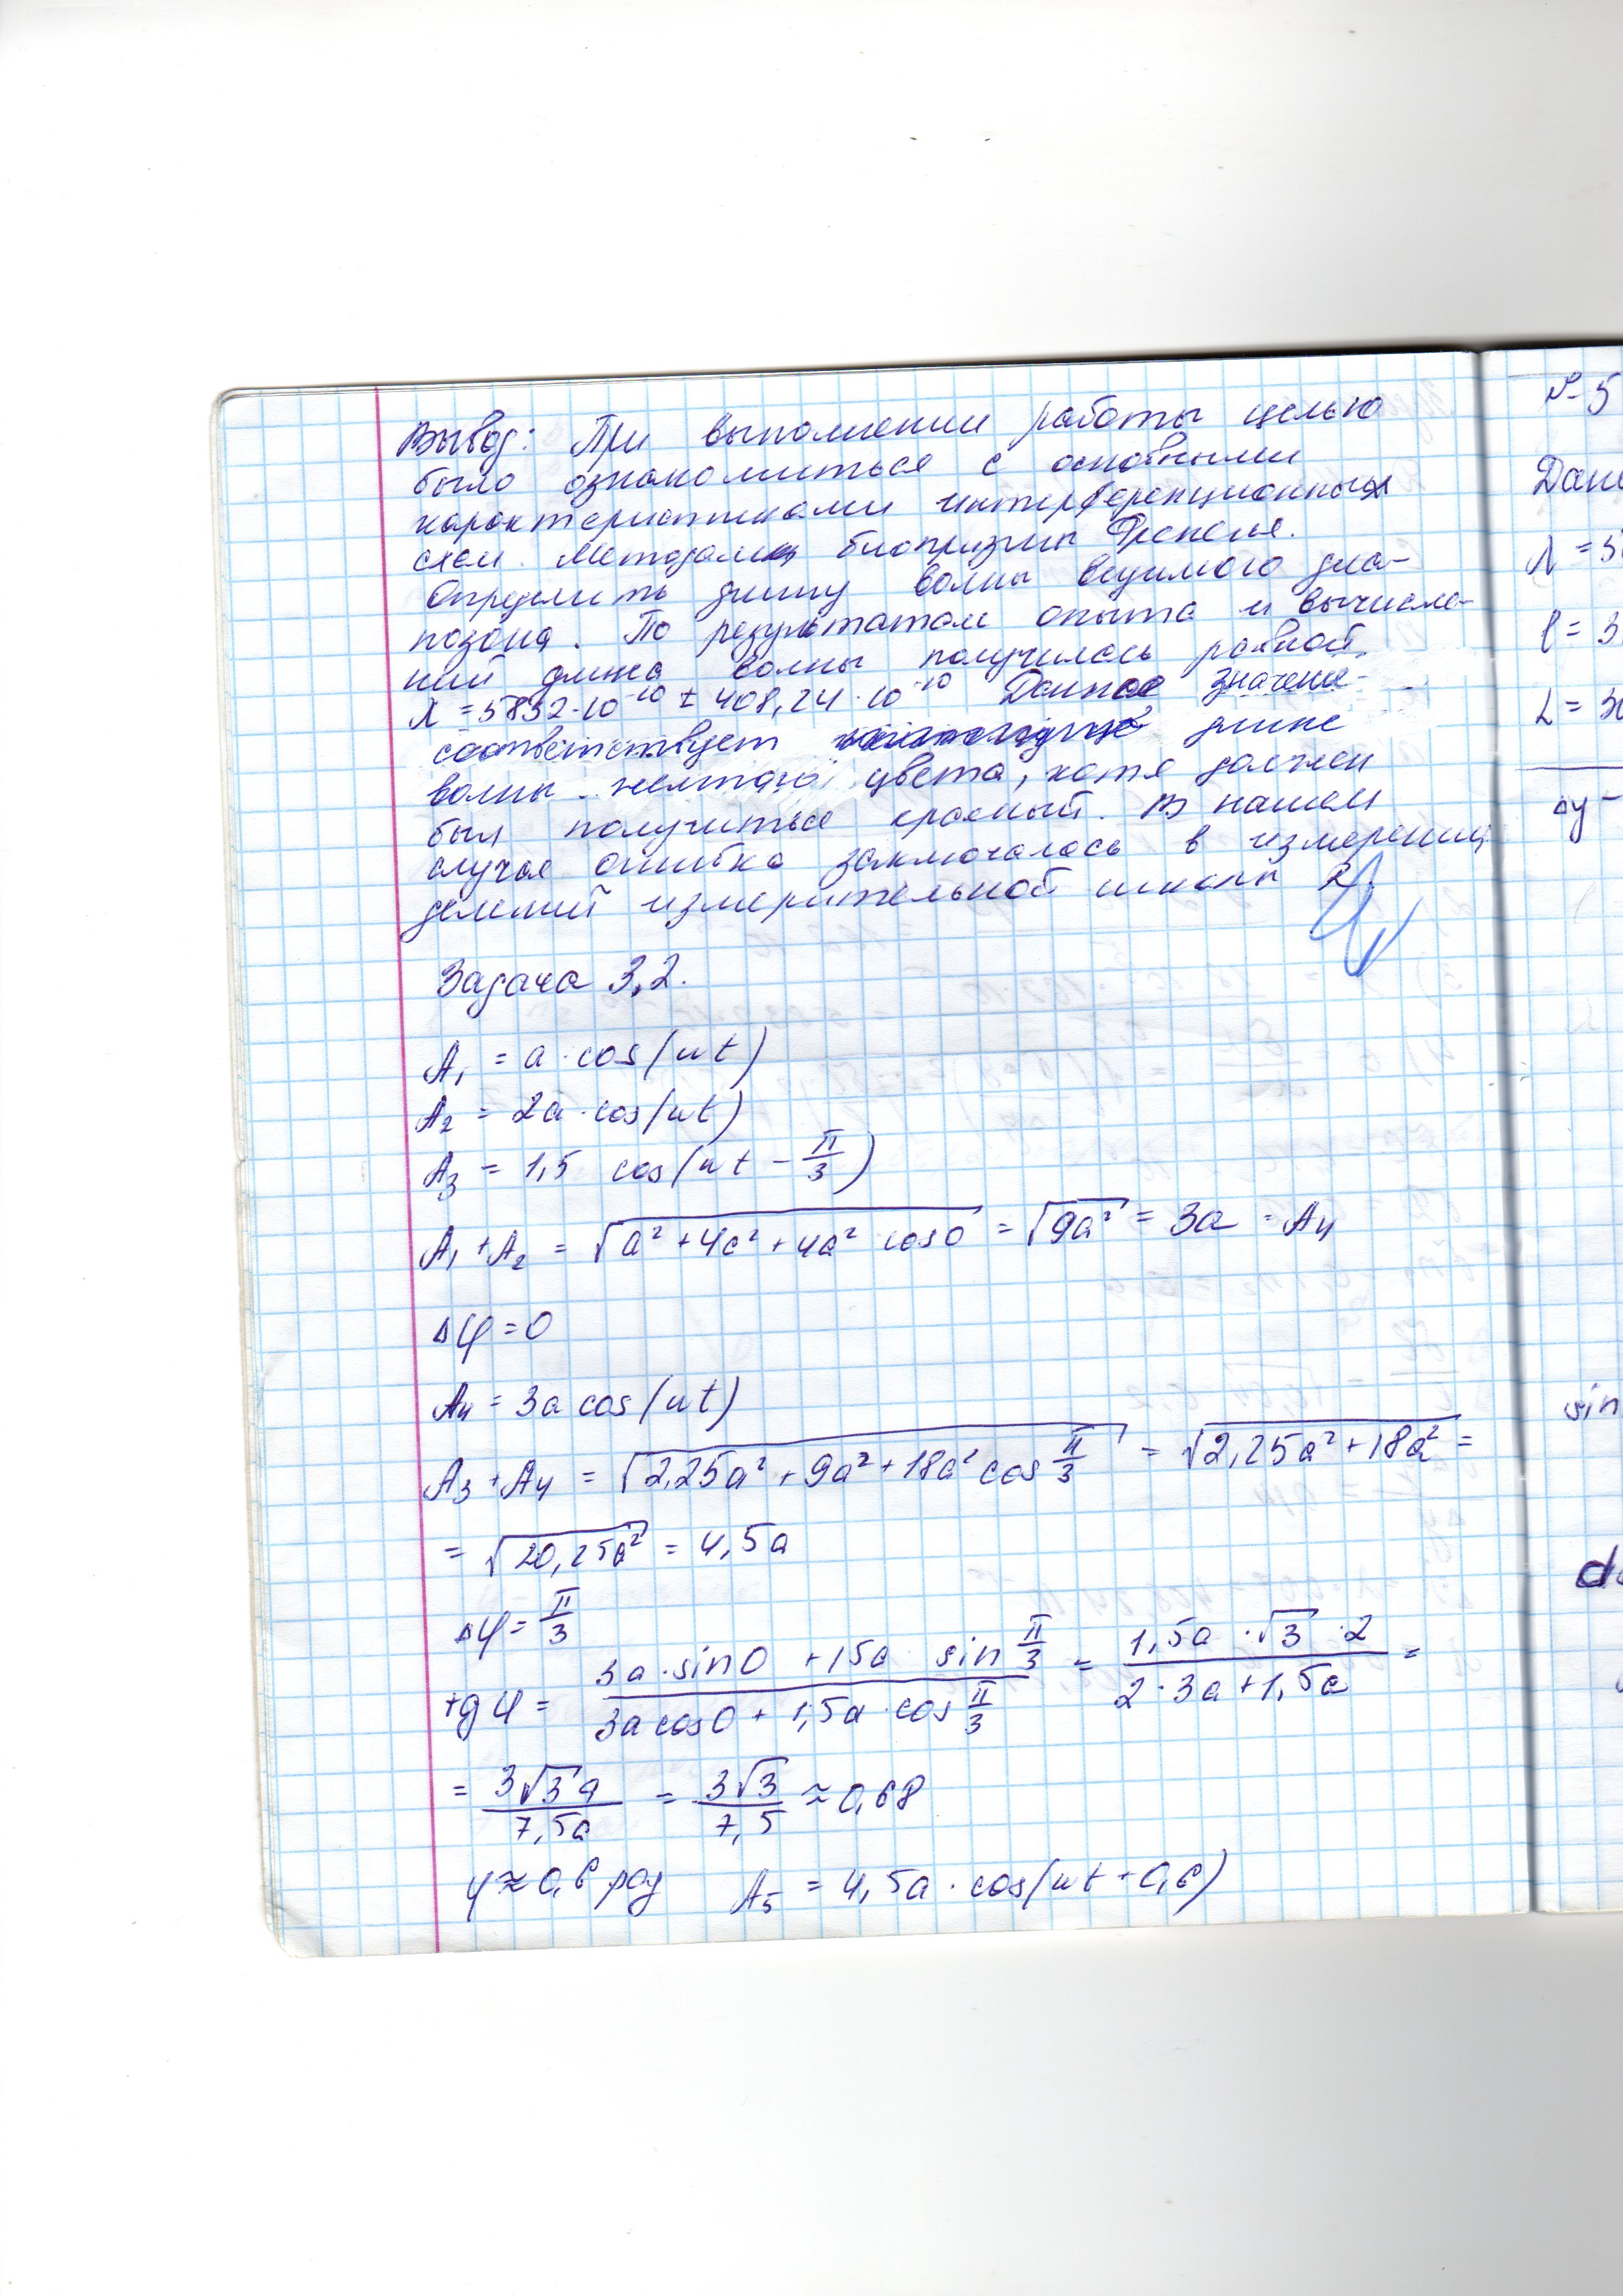 Вывод: При выполнении работы целью
было ознакомиться с основными
характеристиками интерференционных
схем. Методами биопризмы Френеля.
Определить длину волны видимого диа-
позона. По результатам опыта и вычисле-
ний длина волны получилась равной
λ = 5832·10⁻¹⁰ ± 408,24·10⁻¹⁰ Данное значение
соответствует длине
волны желтого цвета, хотя должен
был получиться красный. В нашем
случае ошибка заключалась в измерении
делений измерительной шкалы
Задача 3,2.
A₁ = a·cos(ωt)
A₂ = 2a·cos(ωt)
A₃ = 1,5 cos(ωt - π/3)
A₁ + A₂ = √(a² + 4a² + 4a² cos0) = √(9a²) = 3a = A₄
Δφ = 0
A₄ = 3a cos(ωt)
A₃ + A₄ = √(2,25a² + 9a² + 18a² cos π/3) = √(2,25a² + 18a²) =
= √(20,25a²) = 4,5a
Δφ = π/3
tg φ = (3a·sin0 + 15a sin π/3)/(3a cos0 + 1,5a·cos π/3) = (1,5a·√3·2)/(2·3a + 1,5a) =
= 3√3a/7,5a = 3√3/7,5 ≈ 0,68
φ ≈ 0,6 рад A₅ = 4,5a·cos(ωt + 0,6)
№5
Дано
λ = 5
l = 3
L =
Δy -
sin